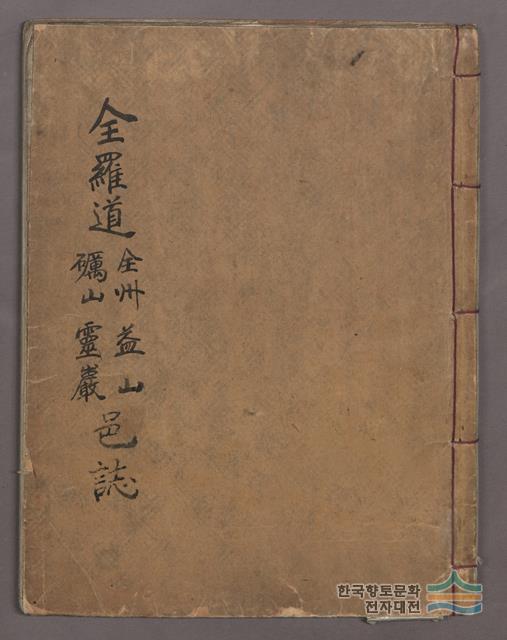 全羅道
全州 益山
礪山 靈巖
邑誌
한국향토문화
전자대전